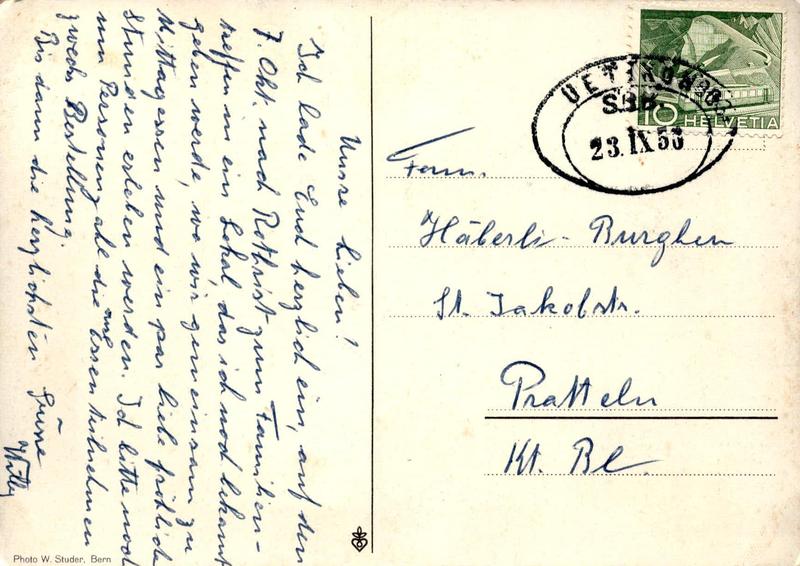 Unsre Lieben!
Ich lade Euch herzlich ein, auf den
7. Okt. nach Rothrist zum Familien-
treffen in ein Lokal, das ich noch bekannt
geben werde, wo wir gemeinsam zu
Mittagessen und ein par liebe fröhliche
Stunden erleben werden. Ich bitte noch
um Personenzahl die am Essen teilnehmen
zwecks Bestellung.
Bis dann die herzlichsten Grüsse
Willy
Photo W. Studer, Bern
UETIKON
SBB
23. IX 53
10 HELVETIA
Fam.
Häberli-Burghen
St. Jakobstr.
Pratteln
Kt. Bl.